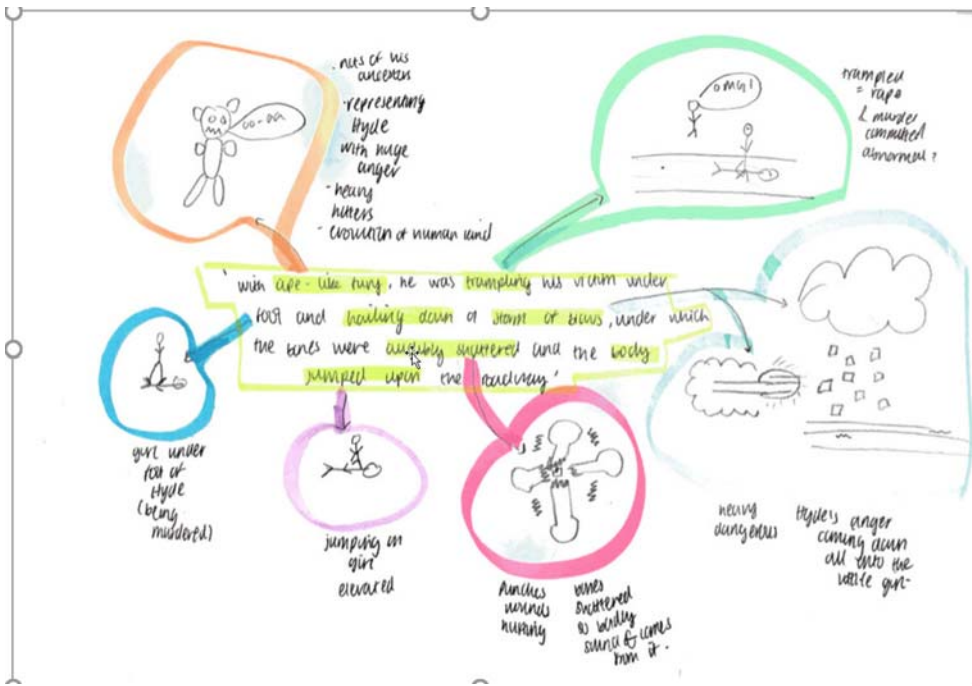 acts of his
ancestors
- representing
Hyde
with huge
anger
- heavy
hitters
- evolution of human kind
oo-aa
OMG!
trampled
= rape
& murder
committed
abnormal?
'with ape-like fury, he was trampling his victim under
foot and hailing down a storm of blows, under which
the bones were audibly shattered and the body
jumped upon the roadway'
girl under
foot of
Hyde
(being
murdered)
jumping on
girl
elevated
Punches
wounds
hurting
bones
shattered
so badly
sound comes
from it.
heavy
dangerous
Hyde's anger
coming down
all onto the
little girl